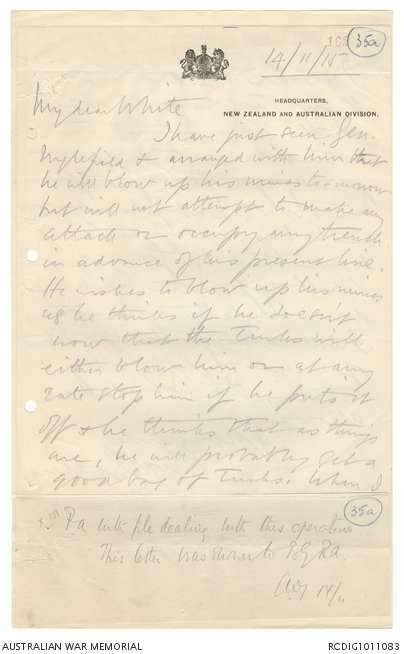 35a
14/11/15
HEADQUARTERS,
NEW ZEALAND AND AUSTRALIAN DIVISION.
My dear White
I have just seen Gen.
& arranged with him that
he will blow up his mines tomorrow
but will not attempt to make any
attack or occupy any trench
in advance of his present line.
He wishes to blow up his mines
as he thinks if he doesn't
now that the Turks will
either blow him or at any
rate stop him if he puts it
off & he thinks that as things
are, he will probably get a
good bag of Turks. When I
35a
Pa with file dealing with this operation
This letter was shown to
14/11
AUSTRALIAN WAR MEMORIAL
RCDIG1011083